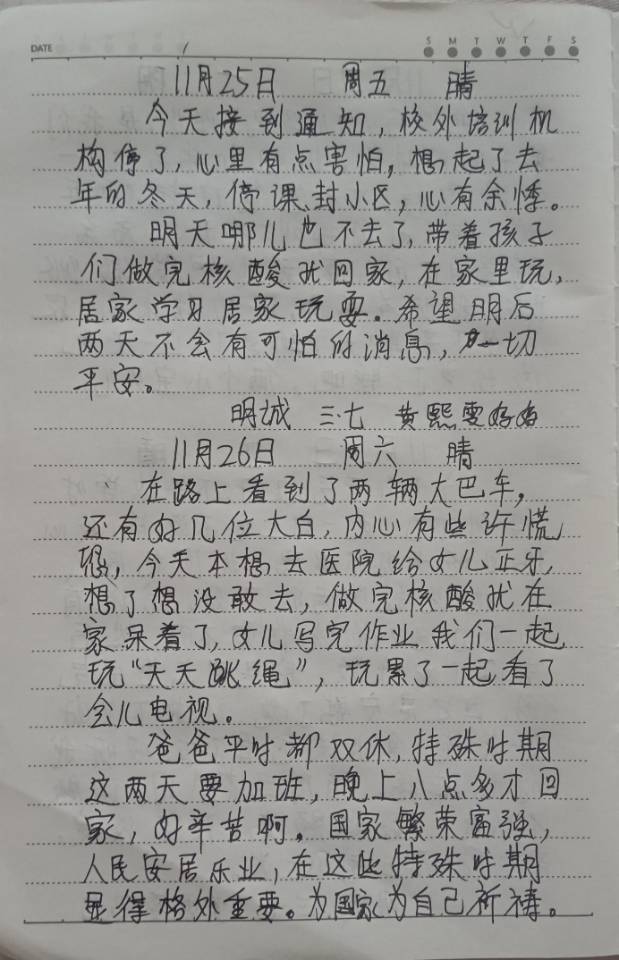 DATE
S M T W T F S
11月25日 周五 晴
今天接到通知,校外培训机
构停了,心里有点害怕,想起了去
年的冬天,停课封小区,心有余悸。
明天哪儿也不去了,带着孩子
们做完核酸就回家,在家里玩,
居家学习居家玩耍。希望明后
两天不会有可怕的消息,一切
平安。
明诚 三七 黄熙要好好
11月26日 周六 晴
在路上看到了两辆大巴车,
还有好几位大白,内心有些许慌
恐,今天本想去医院给女儿正牙,
想了想没敢去,做完核酸就在
家呆着了,女儿写完作业我们一起
玩“天天跳绳”,玩累了一起看了
会儿电视。
爸爸平时都双休,特殊时期
这两天要加班,晚上八点多才回
家,好辛苦啊。国家繁荣富强,
人民安居乐业,在这些特殊时期
显得格外重要。为国家为自己祈祷。